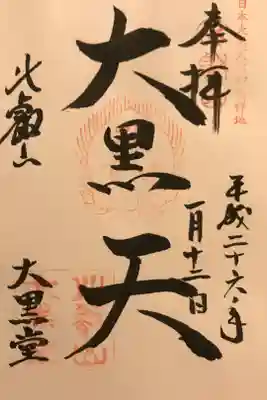 奉拝
平成二十六年
一月十二日
大黒天
比叡山
大黒堂